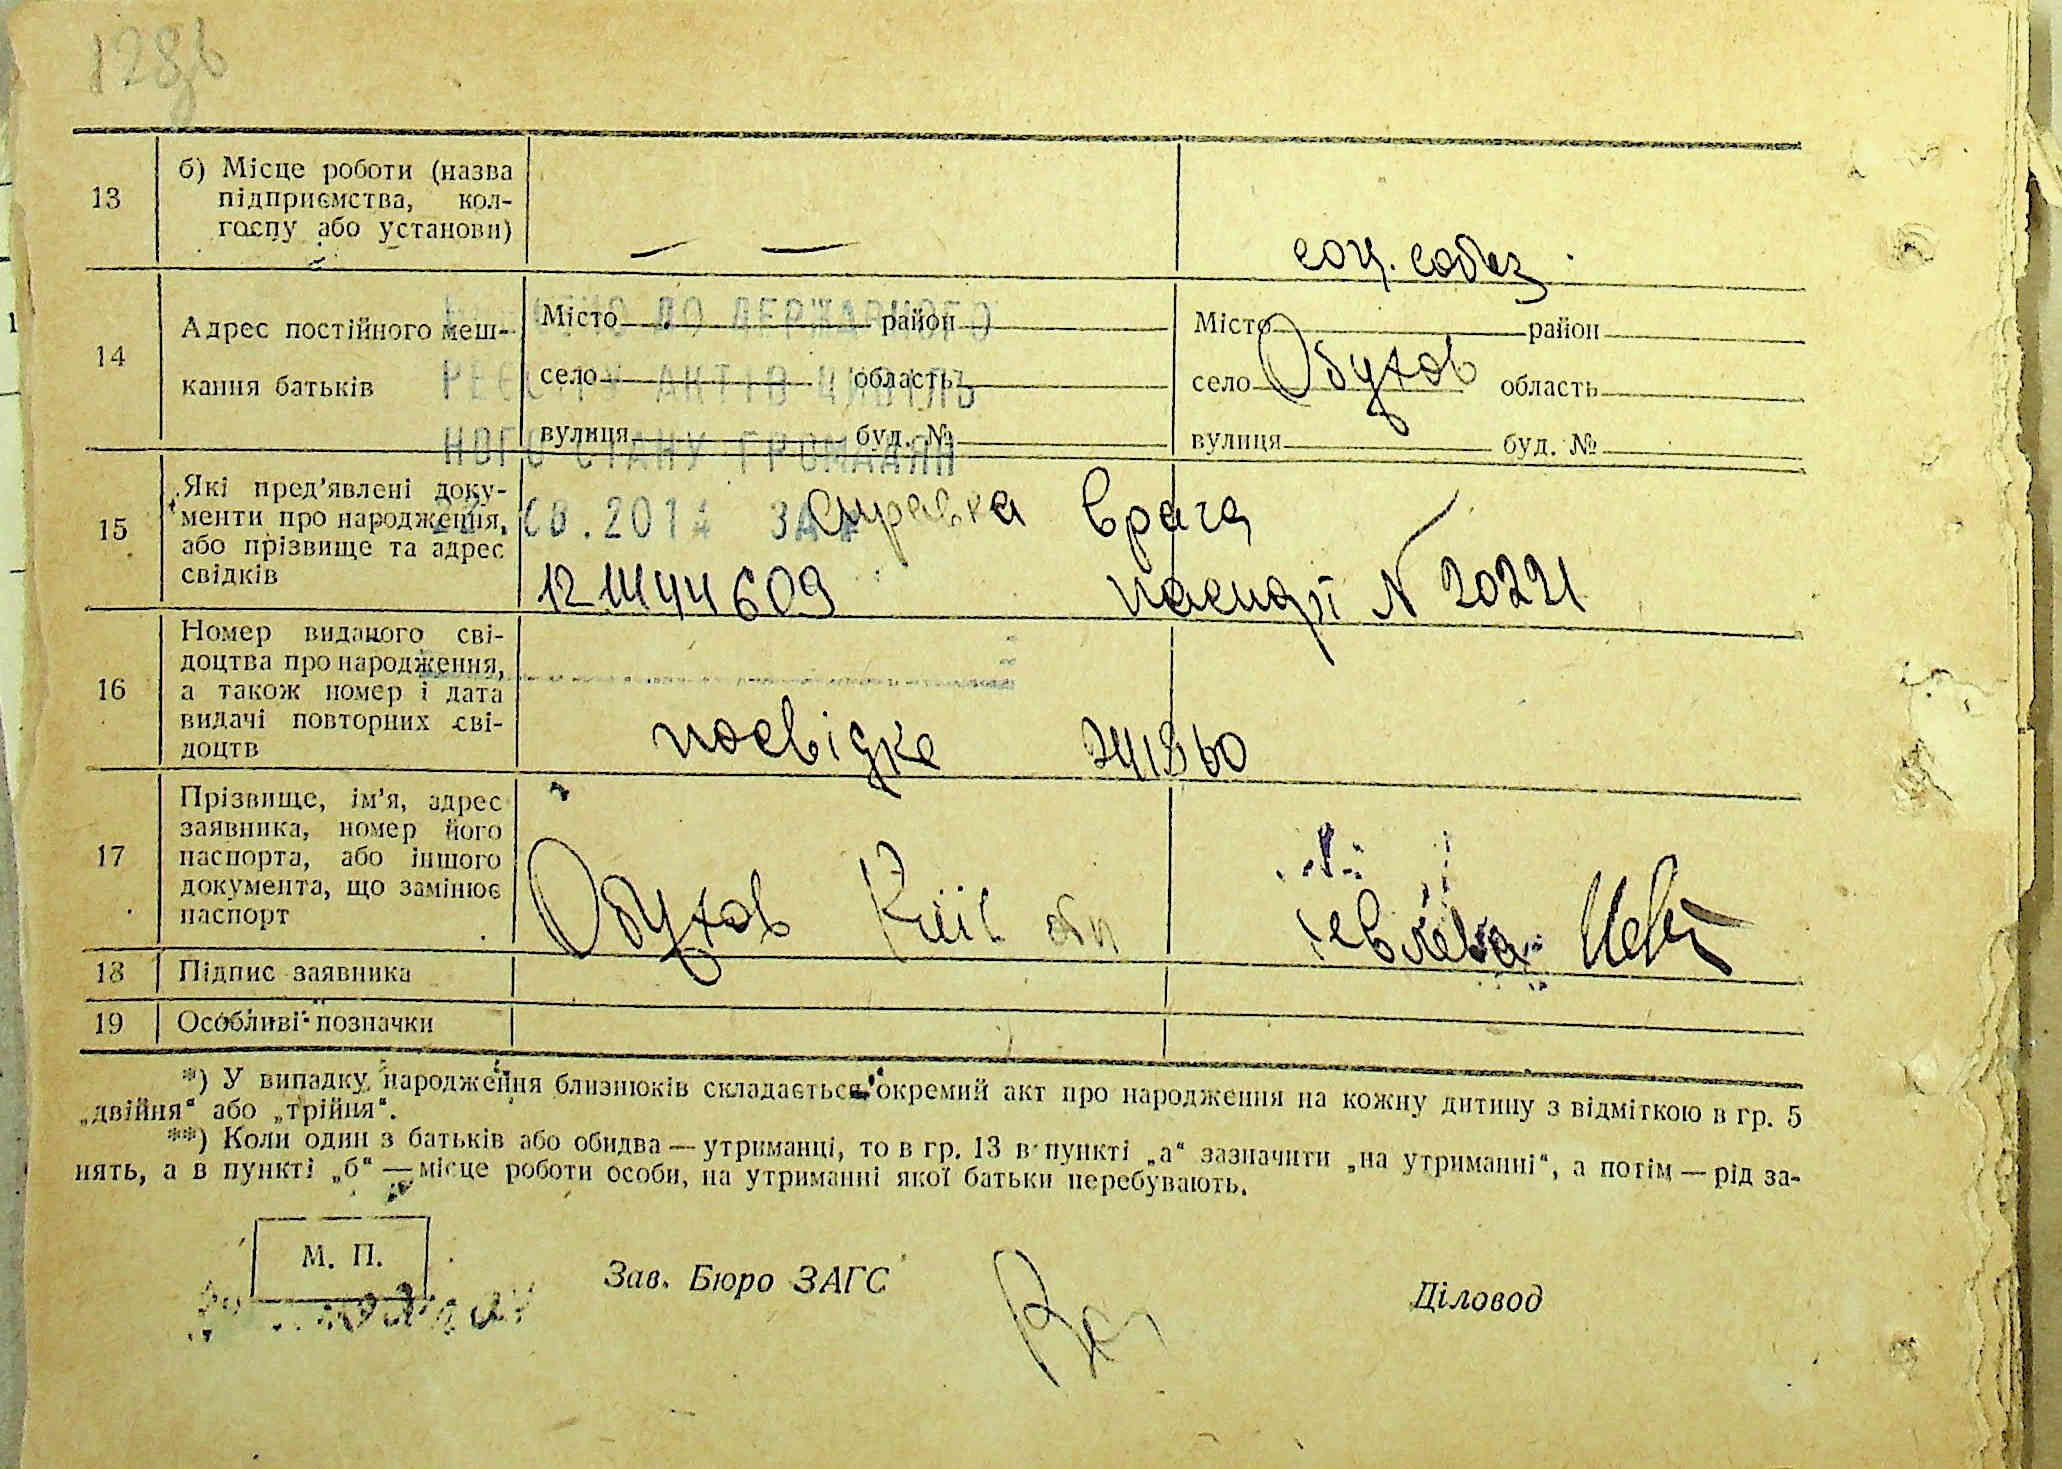 13
б) Місце роботи (назва
підприємства, кол-
госпу або установи)
— —
соц. собез
14
Адрес постійного меш-
кання батьків
Місто район
село область
вулиця буд. №
Місто район
село Обухов область
вулиця буд. №
ДО ДЕРЖАВНОГО
РЕЄСТРУ АКТІВ ЦИВІЛЬ
НОГО СТАНУ ГРОМАДЯН
15
Які пред'явлені доку-
менти про народження,
або прізвище та адрес
свідків
справка врача
паспорт N 20221
16
Номер виданого сві-
доцтва про народження,
а також номер і дата
видачі повторних сві-
доцтв
посвідка
17
Прізвище, ім'я, адрес
заявника, номер його
паспорта, або іншого
документа, що замінює
паспорт
Обухов Київ обл
18 Підпис заявника
19 Особливі позначки
*) У випадку народження близнюків складається окремий акт про народження на кожну дитину з відміткою в гр. 5
„двійня“ або „трійня“.
**) Коли один з батьків або обидва — утриманці, то в гр. 13 в пункті „а“ зазначити „на утриманні“, а потім — рід за-
нять, а в пункті „б“ — місце роботи особи, на утриманні якої батьки перебувають.
М. П.
Зав. Бюро ЗАГС
Діловод